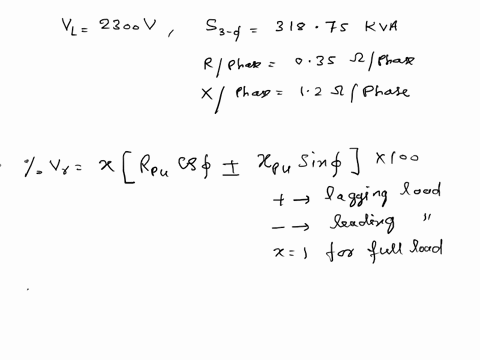 V_L = 2300 V , S_3-ϕ = 318.75 KVA
R/Phase = 0.35 Ω/Phase
X/Phase = 1.2 Ω/Phase
% V_r = x [ R_pu cos ϕ ± x_pu Sin ϕ ] x 100
+ → lagging load
- → leading "
x = 1 for full load